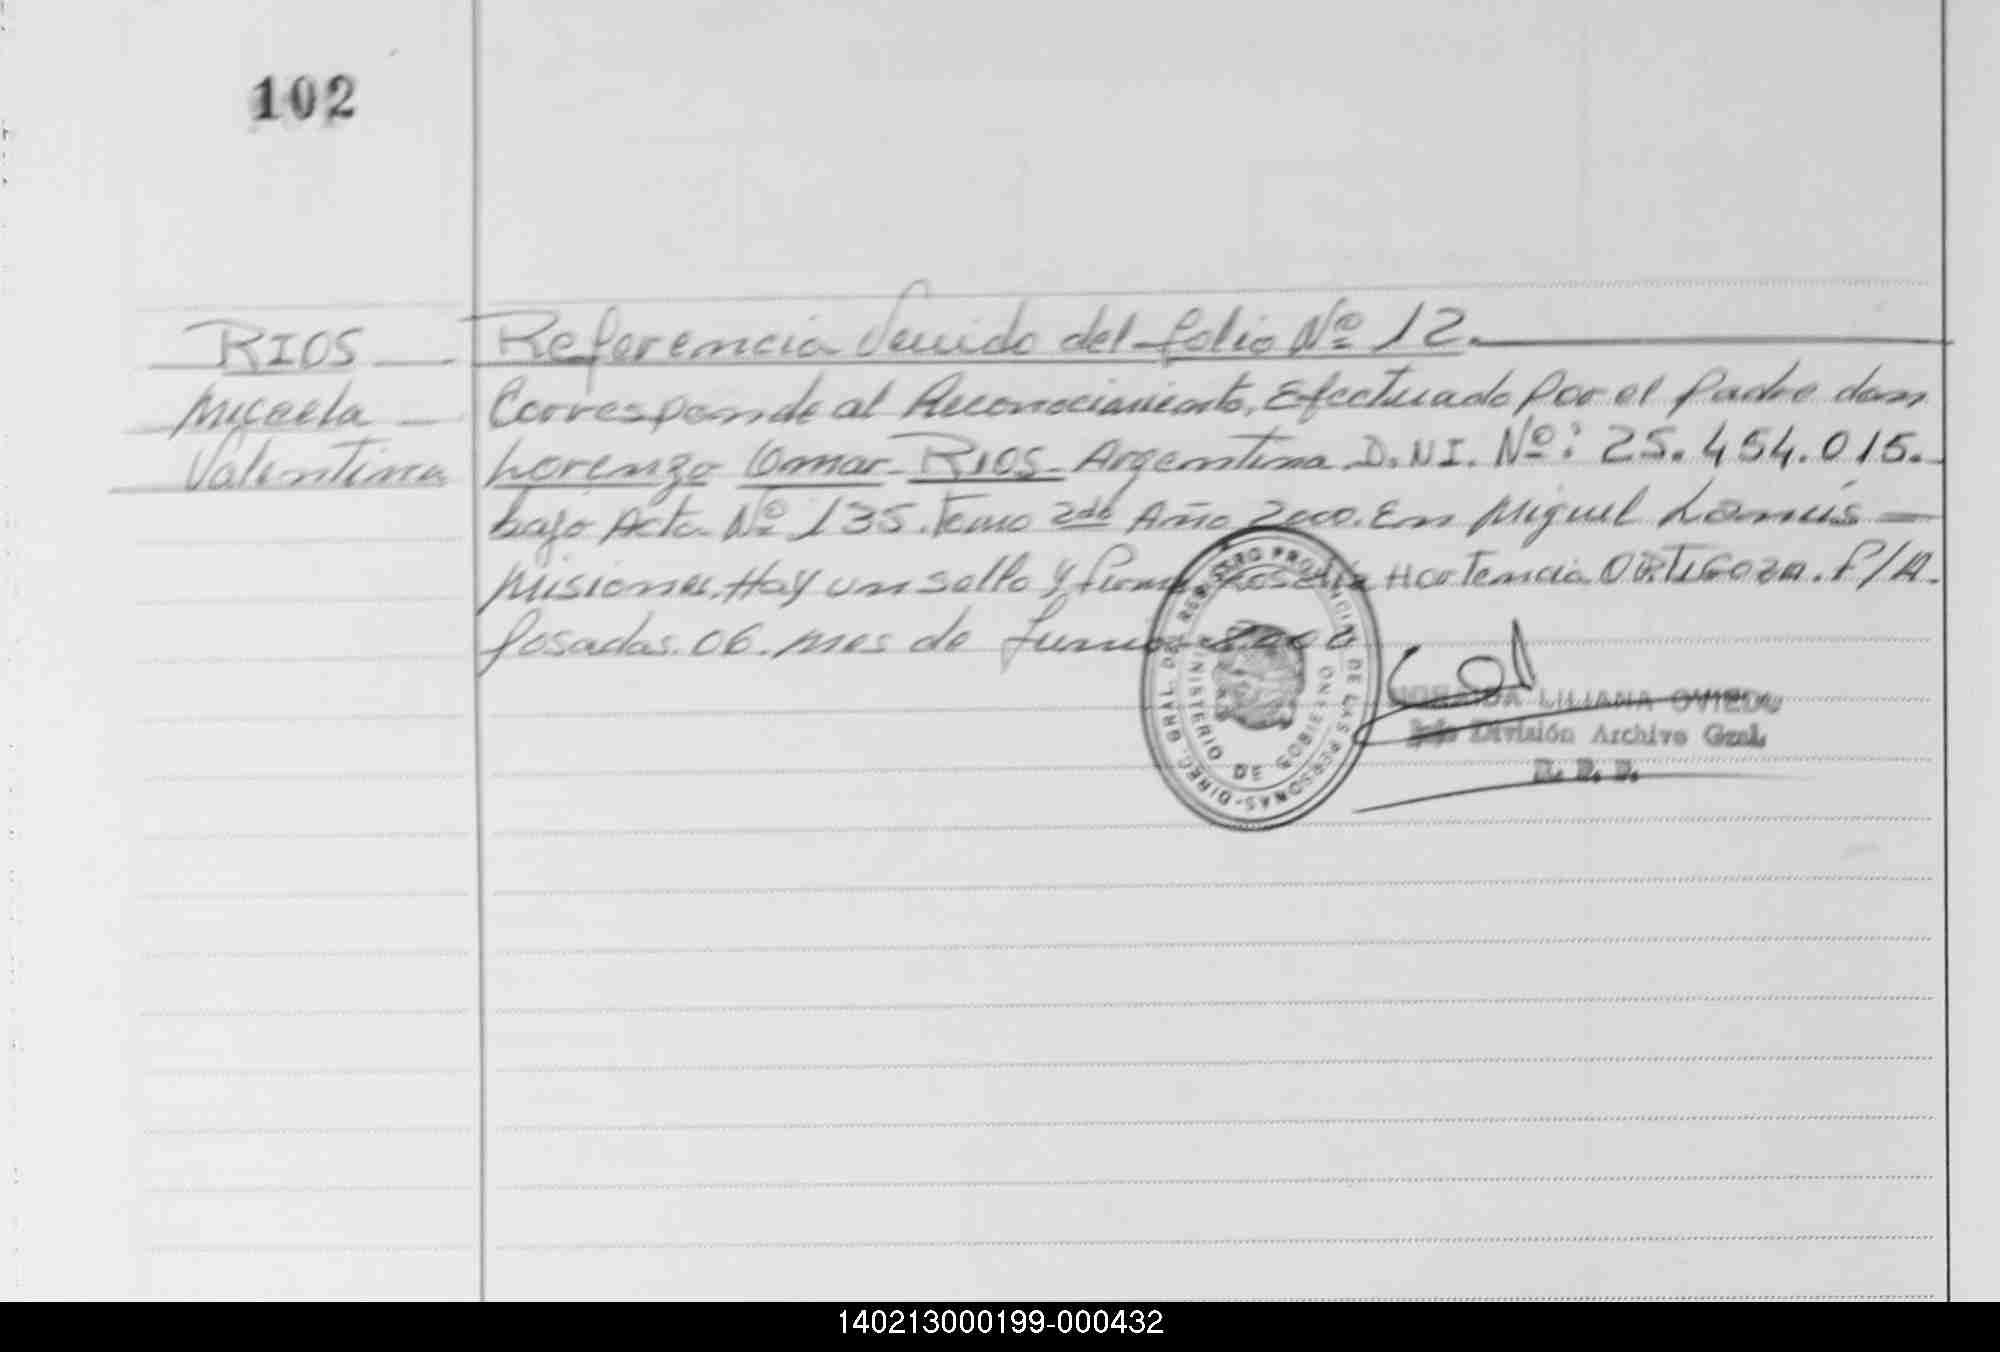 102
RIOS
Micaela
Valentina
Referencia Venido del folio Nº 12.
Corresponde al Reconocimiento, Efectuado Por el Padre don
Lorenzo Omar RIOS Argentina D.N.I. Nº: 25.454.015.
bajo Acta Nº 135. Tomo 2do Año 2000. En Miguel Lanús
Misiones. Hay un sello y firma Hortencia ORTIGOZA. P/A.
Posadas. 06. mes de Junio
DIREC. GRAL. DEL REGISTRO PROVINCIAL DE LAS PERSONAS
MINISTERIO DE GOBIERNO
LILIANA OVIEDO
División Archivo Gral.
140213000199-000432